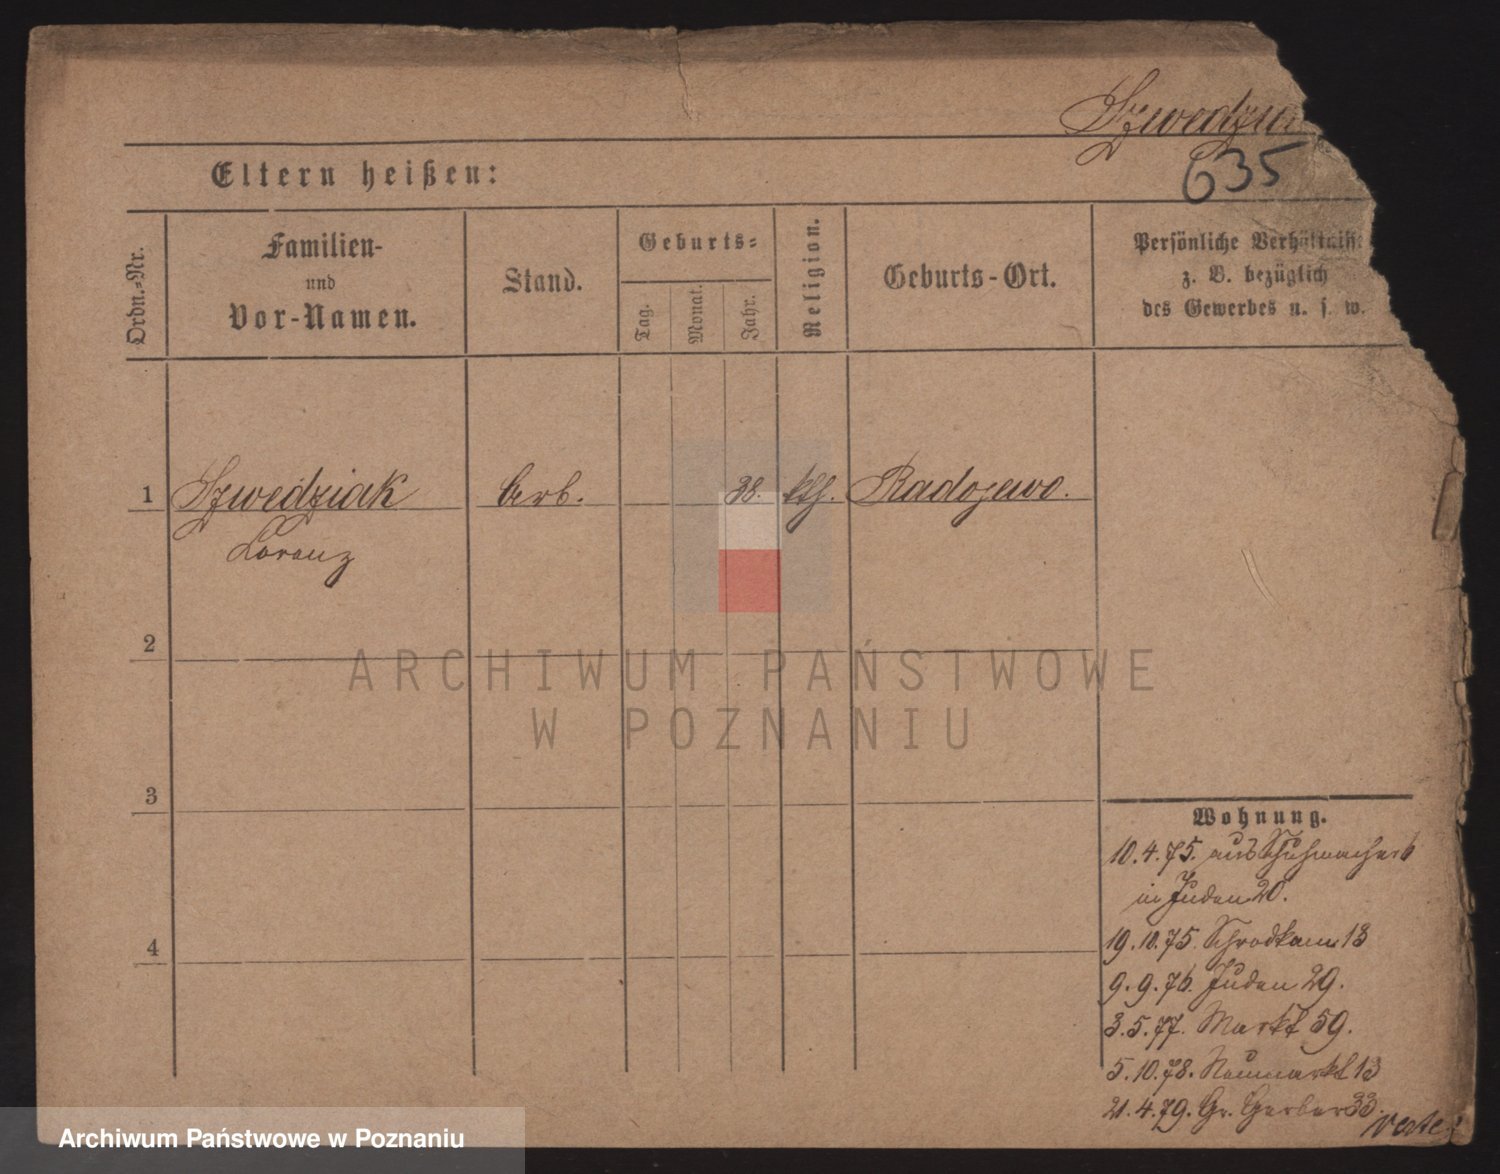 Szwedzia
635
Eltern heißen:
Ordn.-Nr.
Familien-
und
Vor-Namen.
Stand.
Geburts-
Tag.
Monat.
Jahr.
Religion.
Geburts-Ort.
Persönliche Verhältniss
z. B. bezüglich
des Gewerbes u. s. w.
1 Szwedziak Arb. 38. kth. Radojewo.
Lorenz
2
3
4
ARCHIWUM PAŃSTWOWE
W POZNANIU
Wohnung.
10.4.75. aus Schuhmacher 6
in Juden 20.
19.10.75. Schrodkam 13
9.9.76. Juden 29.
3.5.77. Markt 59.
5.10.78. Neumarkt 13
21.4.79. Gr. Gerber 33.
verte!
Archiwum Państwowe w Poznaniu